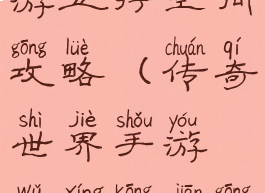 游五行空间
gōng lüè chuán qí
攻略（传奇
shì jiè shǒu yóu
世界手游
wǔ xíng kōng jiān gōng